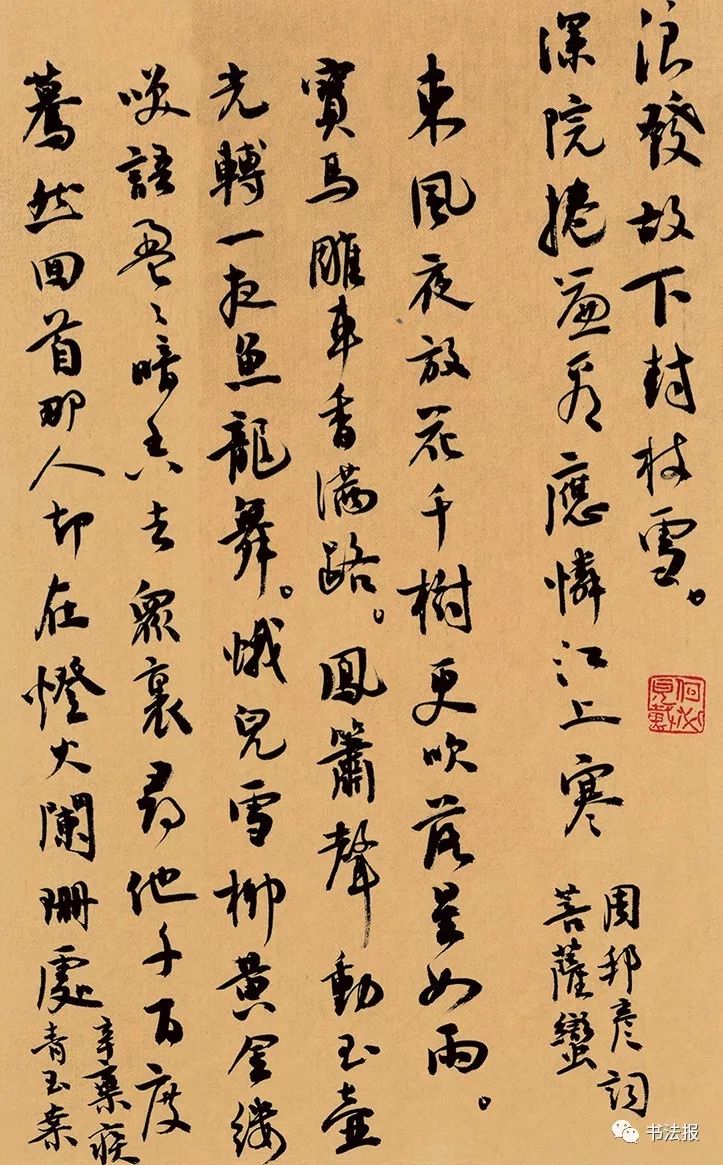 浪發故下封枝雪。
深院捲簾看應憐江上寒
周邦彥詞
菩薩蠻
東風夜放花千樹更吹落星如雨。
寶馬雕車香滿路。鳳簫聲動玉壺
光轉一夜魚龍舞。蛾兒雪柳黄金縷
咲語盈〻暗香去衆裏尋他千百度
驀然回首那人却在燈火闌珊處
辛棄疾
青玉案
何必見戴
书法报